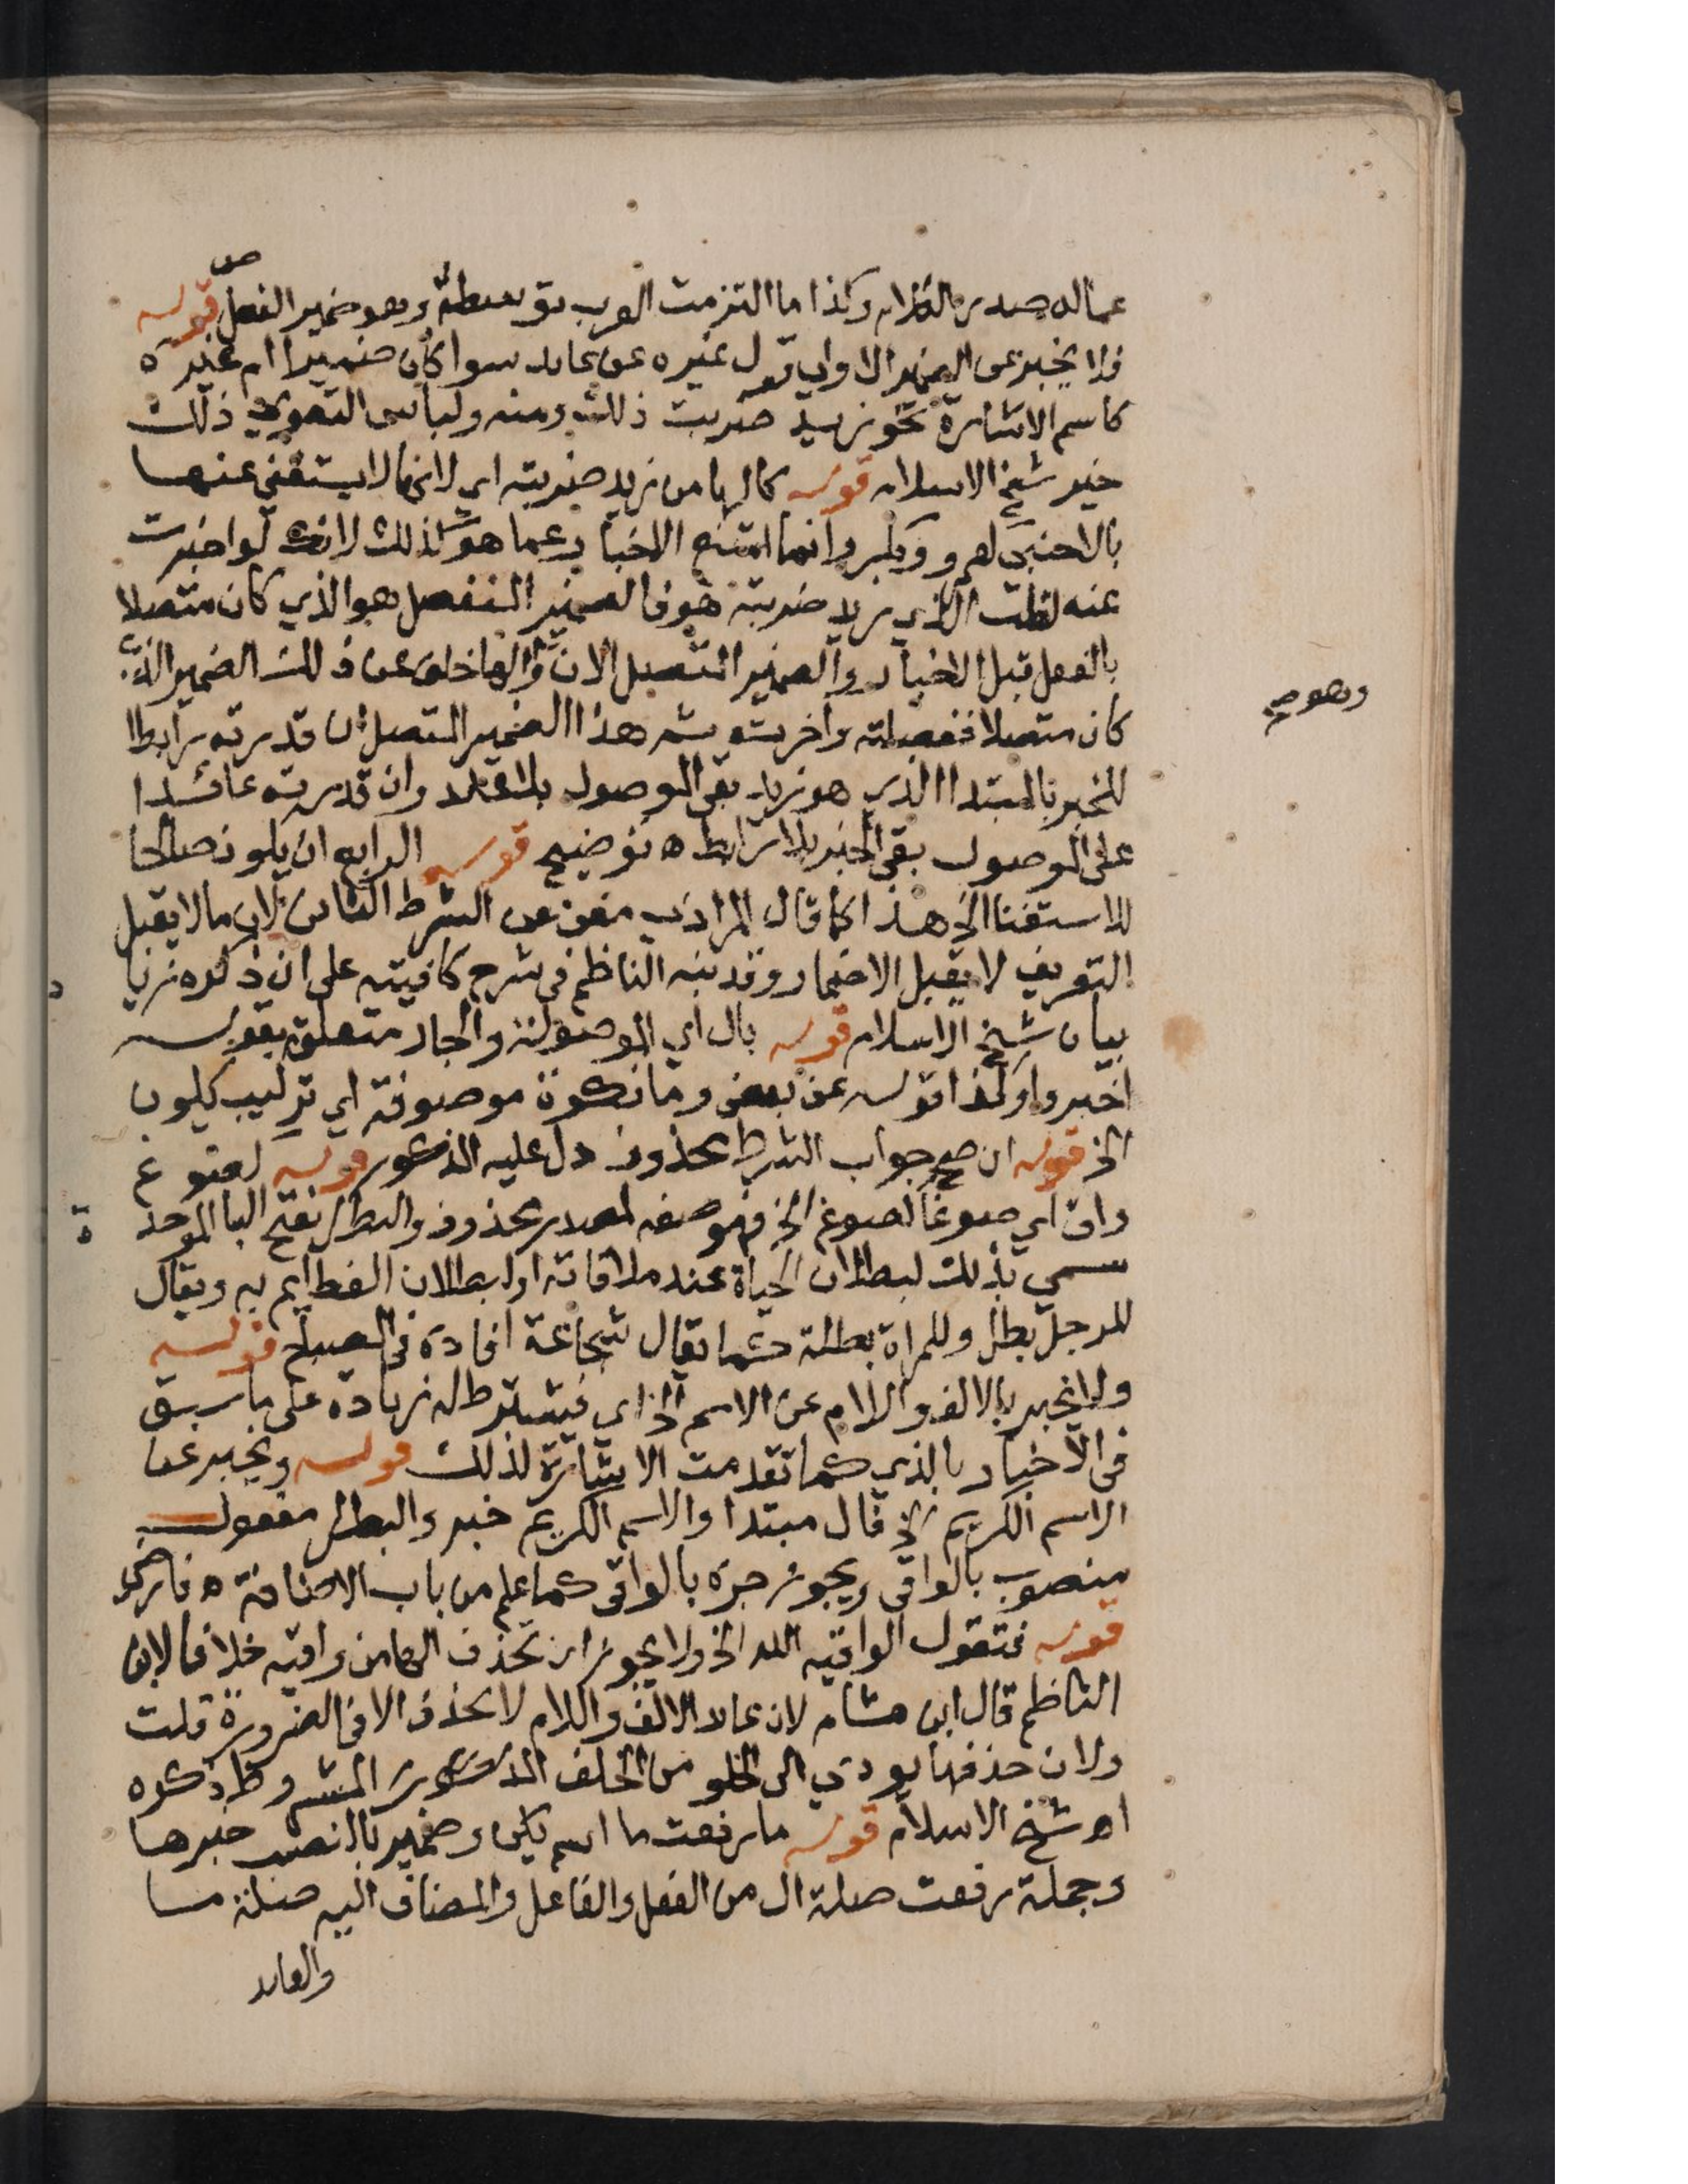 عماله صدر الكلام وكذا ما التزمت العرب توسطه وهو ضمير الفصل قوله
فلا يخبر عن الضمير الاولى قول غيره عن عايد سوا كان ضميرا ام غيره
كاسم الاشارة نحو زيد ضربت ذلك ومنه ولباس التقوى ذلك
خير شيخ الاسلام قوله كالها من زيد ضربته اي لانها لا يستغني عنها
بالاجنبي لعمرو وبكر وانما امتنع الاخبار عما هو كذلك لانك لو اخبرت
عنه لقلت الذي زيد ضربته هو فالضمير المنفصل هو الذي كان متصلا
بالفعل قبل الاخبار والضمير المتصل الان والها خلف عن ذلك الضمير الذي
وهو صح
كان متصلا ففصلته واخرته ثم هذا الضمير المتصل ان قدرته رابطا
للخبر بالمبتدا الذي هو زيد بقي الموصول بلا عايد وان قدرته عائدا
على الموصول بقي الخبر بلا رابط ه توضيح قوله الرابع ان يكون صالحا
للاستغنا الخ هذا كما قال المرادي مغن عن الشرط الثاني لان ما لا يقبل
التعريف لا يقبل الاضمار وقد نبه الناظم في شرح كافيته على ان ذكره زيا
د
بيان شيخ الاسلام قوله بال اي الموصولة والجار متعلق بقوله
اخبروا وكذا قوله عن بعض وما نكرة موصوفة اي تركيب يكون
الخ قوله ان صح جواب الشرط محذوف دل عليه المذكور قوله لصوغ
واق اي صوغا لصوغ الخ فهو صفة لمصدر محذوف والبطل بفتح البا الموحد
ة
سمي بذلك لبطلان الحياة عند ملاقاته او لبطلان العظايم به ويقال
للرجل بطل وللمراة بطلة كما يقال شجاعة افاده في المصباح قوله
ولا يخبر بالالف واللام عن الاسم الخ اي فيشترط له زيادة على ما سبق
في الاخبار بالذي كما تقدمت الاشارة لذلك قوله ويخبر عن
الاسم الكريم الخ فال مبتدا والاسم الكريم خبر والبطل مفعول
منصوب بالواقي ويجوز جره بالواقي كما علم من باب الاضافة ه فارضي
قوله فتقول الواقيه الله الخ ولا يجوز ان تحذف الها من واقيه خلافا لابن
الناظم قال ابن هشام لان عايد الالف واللام لا يحذف الا في الضرورة قلت
ولان حذفها يودي الى الخلو من الخلف المذكور المشروط ذكره
اه شيخ الاسلام قوله ما رفعت ما اسم يكن وضمير بالنصب خبرها
وجملة رفعت صلة ال من الفعل والفاعل والمضاف اليه صلة ما
والعايد